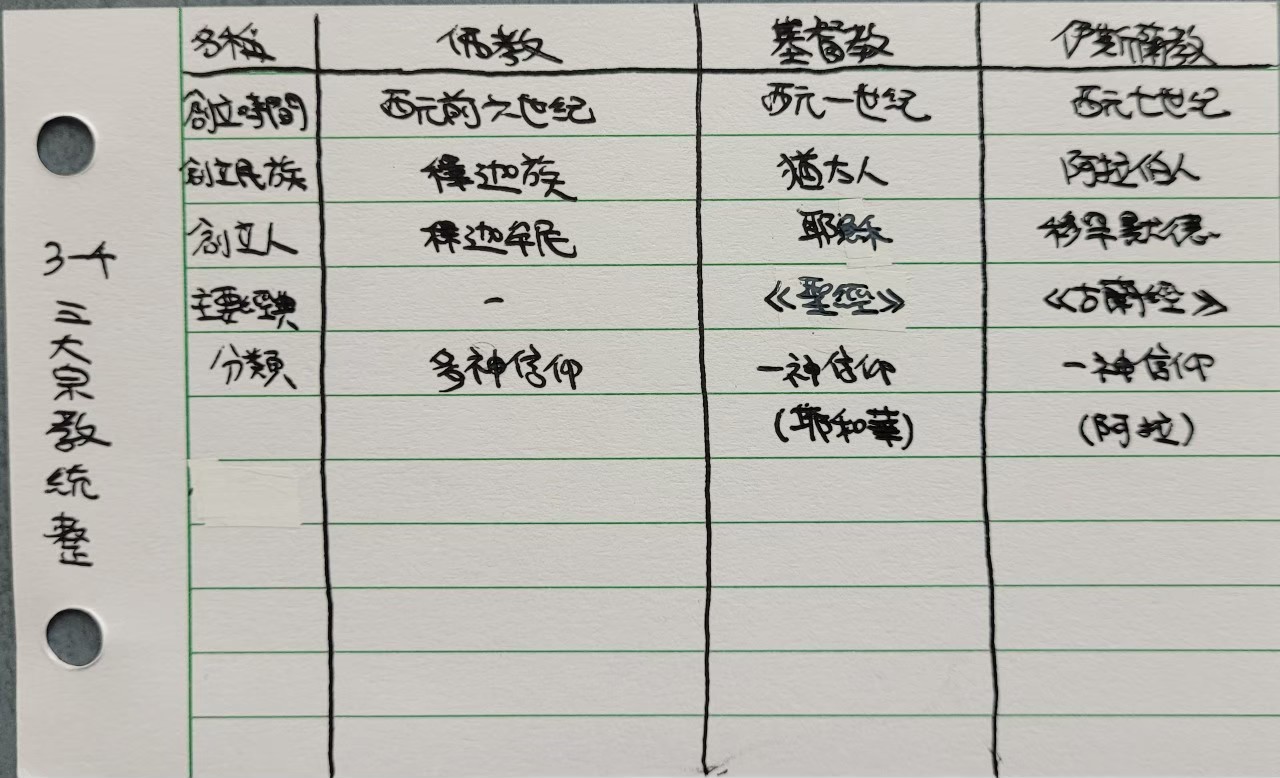 3-4 三大宗教統整
名稱 佛教 基督教 伊斯蘭教
創立時間 西元前六世紀 西元一世紀 西元七世紀
創立民族 釋迦族 猶太人 阿拉伯人
創立人 釋迦牟尼 耶穌 穆罕默德
主要經典 - 《聖經》 《古蘭經》
分類 多神信仰 一神信仰 一神信仰
(耶和華) (阿拉)